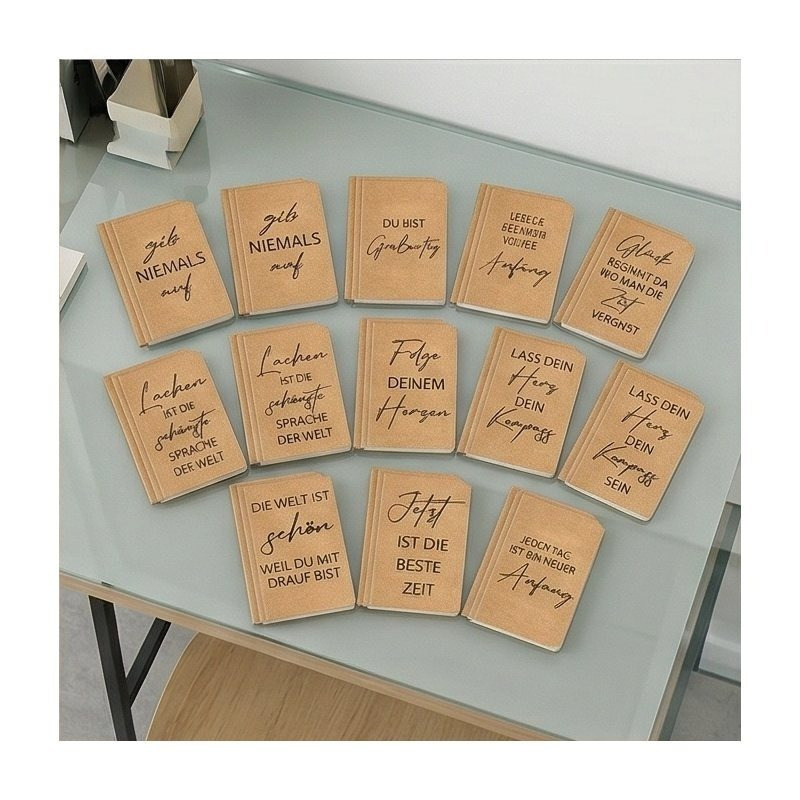 gib
NIEMALS
auf
gib
NIEMALS
auf
DU BIST
Großartig
Anfang
Glück
BEGINNT DA
WO MAN DIE
Zeit
VERGNST
Lachen
IST DIE
SPRACHE
DER WELT
Lachen
IST DIE
SPRACHE
DER WELT
Folge
DEINEM
Herzen
LASS DEIN
Herz
DEIN
Kompass
LASS DEIN
Herz
DEIN
Kompass
SEIN
DIE WELT IST
schön
WEIL DU MIT
DRAUF BIST
Jetzt
IST DIE
BESTE
ZEIT
IST EIN NEUER
Anfang